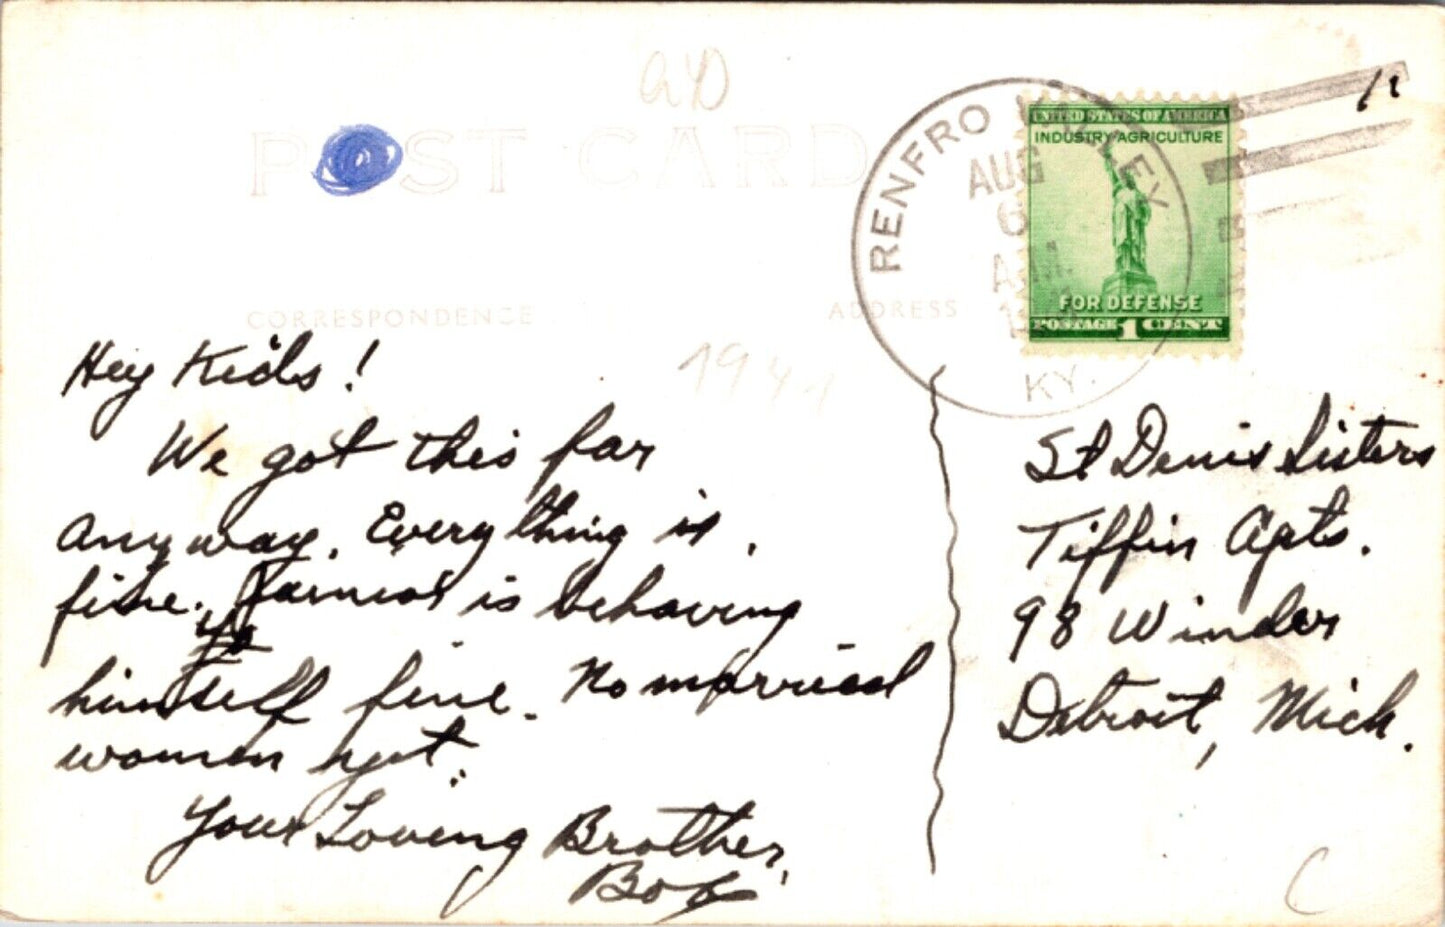 POST CARD
RENFRO VALLEY
AUG
6
A.M.
KY.
UNITED STATES OF AMERICA
INDUSTRY AGRICULTURE
FOR DEFENSE
POSTAGE 1 CENT
CORRESPONDENCE
ADDRESS
1941
Hey Kids!
We got this far
anyway. Everything is
fine. is behaving
himself fine. No married
women yet.
Your Loving Brother,
Bob
St Denis Sisters
Tiffin Apts.
98 Winder
Detroit, Mich.